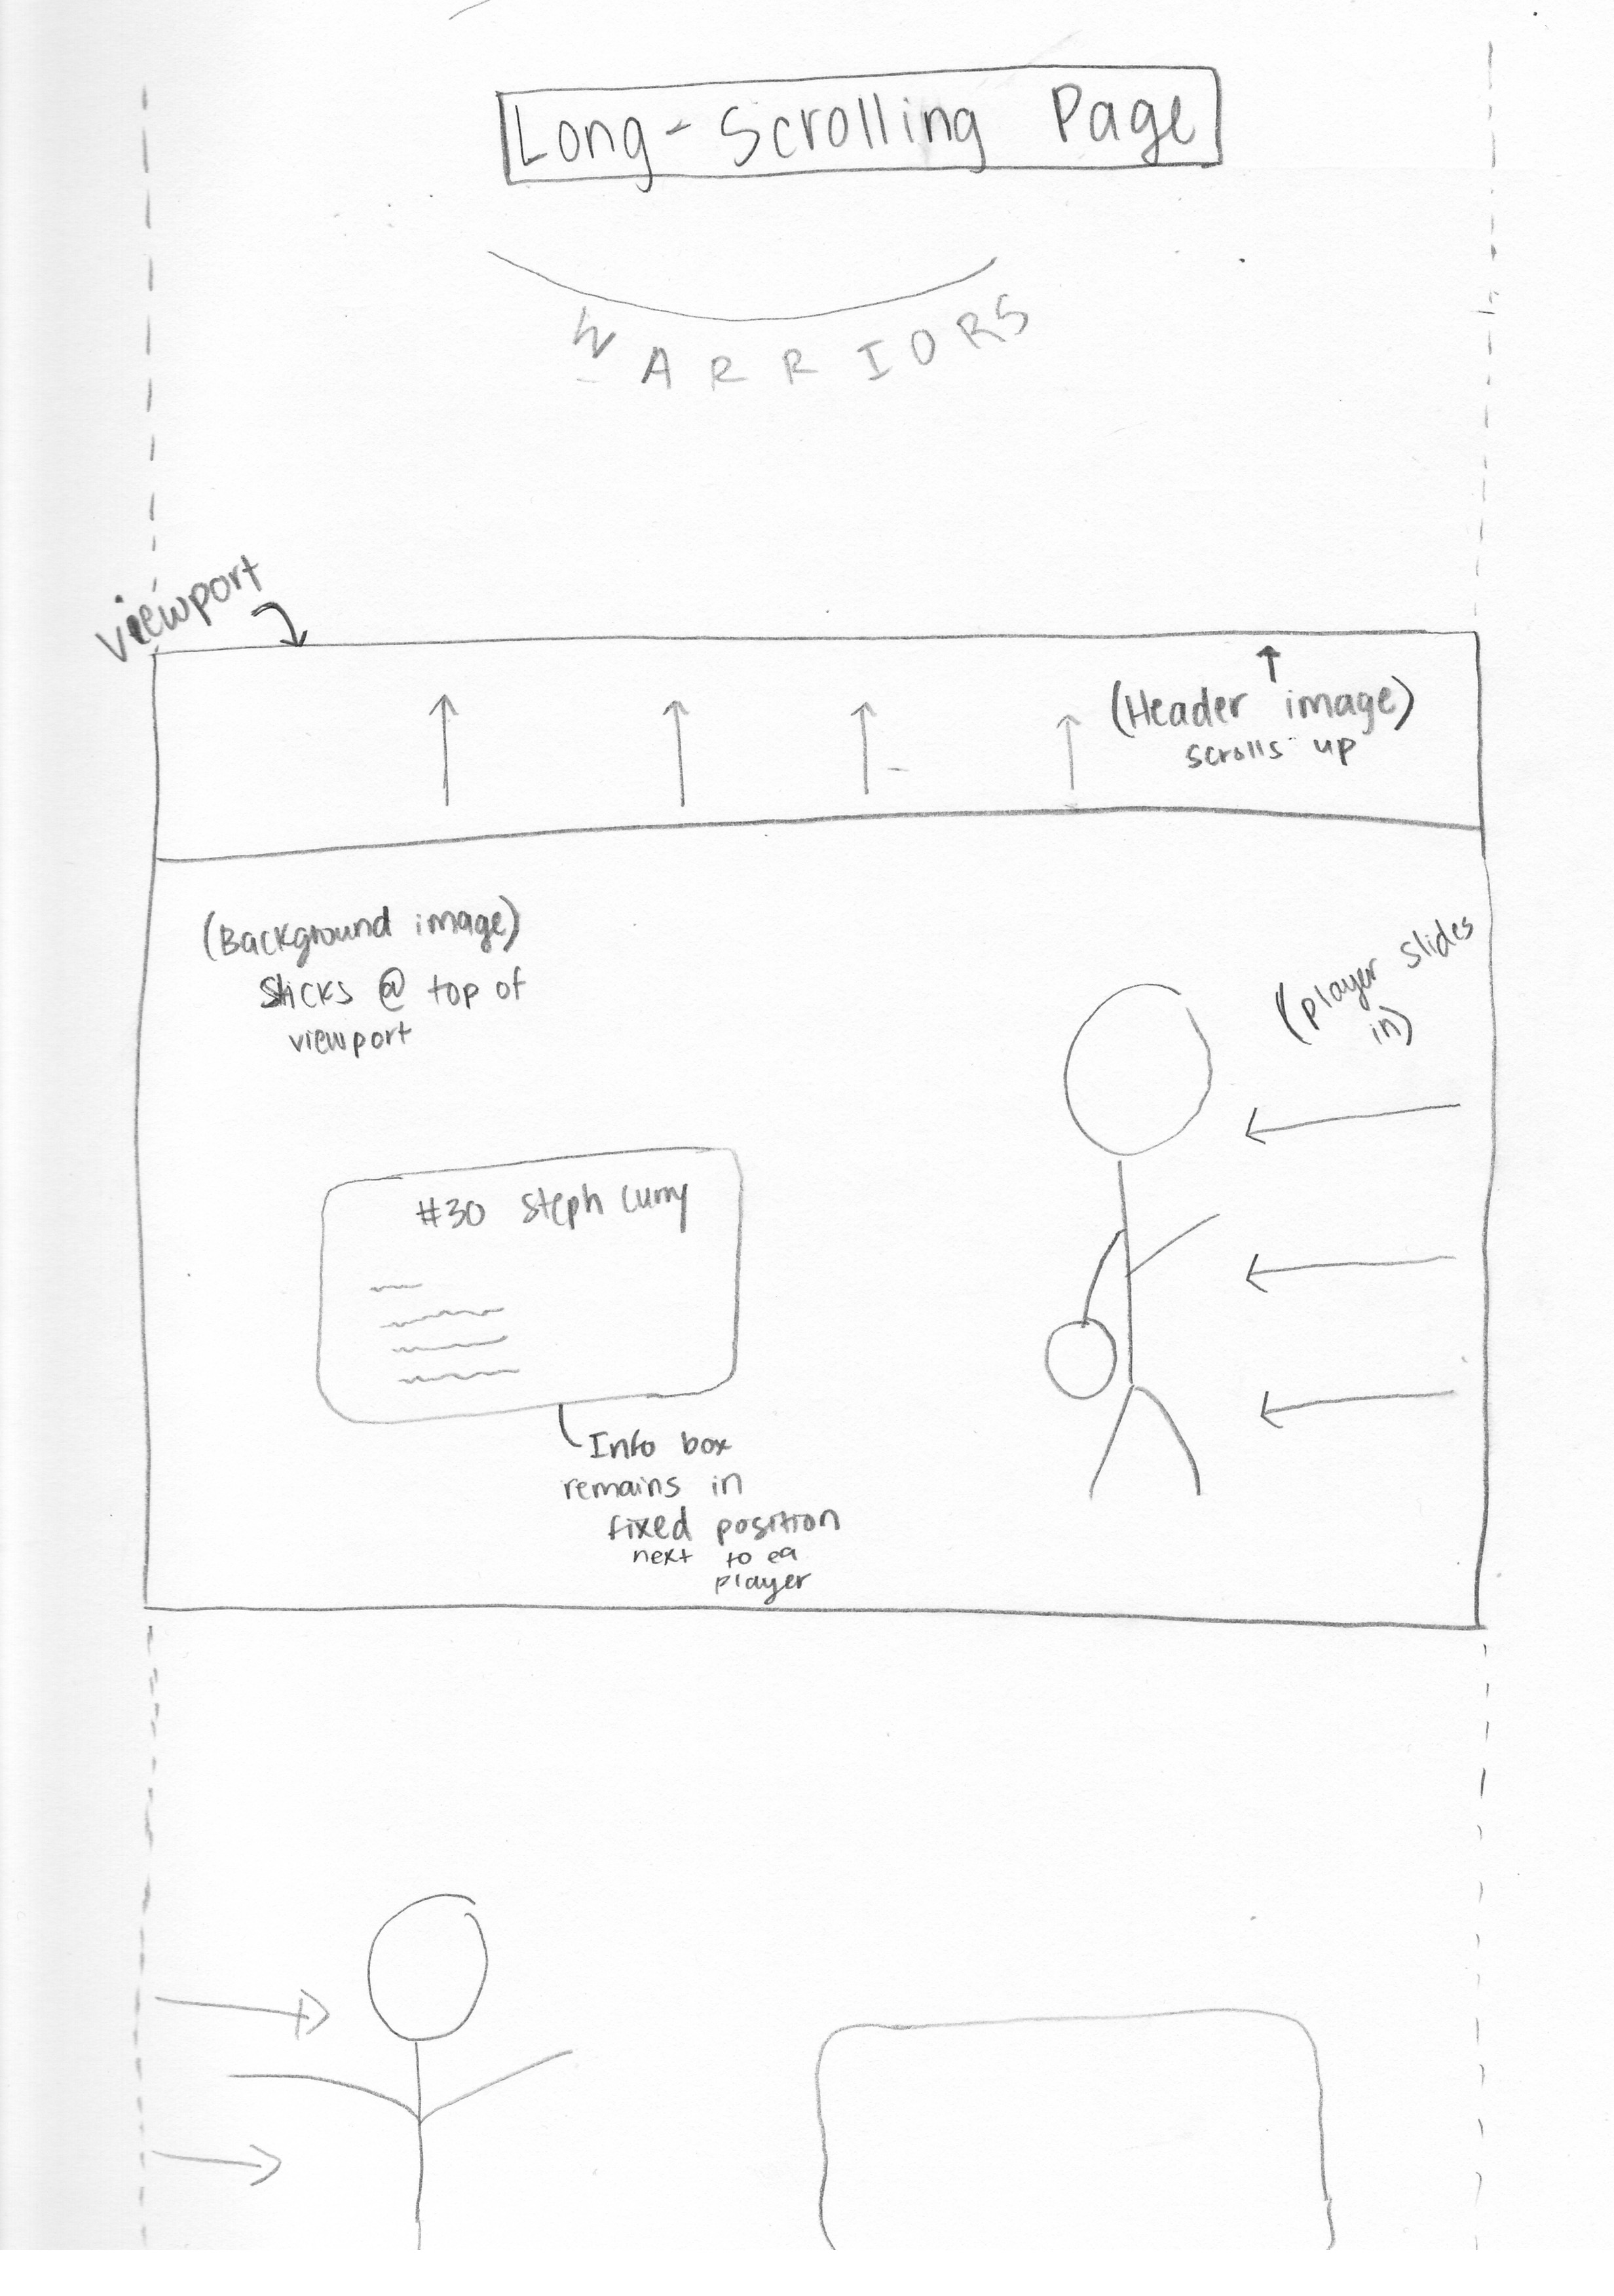 Long-Scrolling Page
WARRIORS
viewport
(Header image)
scrolls up
(Background image)
sticks @ top of
viewport
(player slides
in)
#30 Steph Curry
Info box
remains in
fixed position
next to ea
player